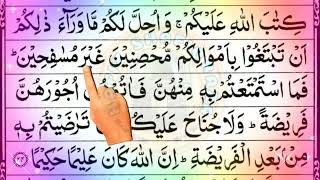 كِتٰبَ اللّٰهِ عَلَيْكُمْ ۚ وَاُحِلَّ لَكُمْ مَّا وَرَآءَ ذٰلِكُمْ
اَنْ تَبْتَغُوْا بِاَمْوَالِكُمْ مُّحْصِنِيْنَ غَيْرَ مُسٰفِحِيْنَ ؕ
فَمَا اسْتَمْتَعْتُمْ بِهٖ مِنْهُنَّ فَاٰتُوْهُنَّ اُجُوْرَهُنَّ
فَرِيْضَةً ؕ وَلَا جُنَاحَ عَلَيْكُمْ تَرٰضَيْتُمْ بِهٖ
مِنْۢ بَعْدِ الْفَرِيْضَةِ ؕ اِنَّ اللّٰهَ كَانَ عَلِيْمًا حَكِيْمًا